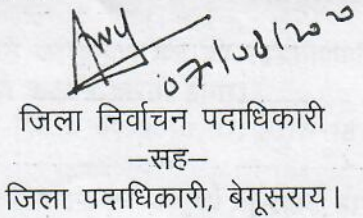 07/08/2020
जिला निर्वाचन पदाधिकारी
–सह–
जिला पदाधिकारी, बेगूसराय।